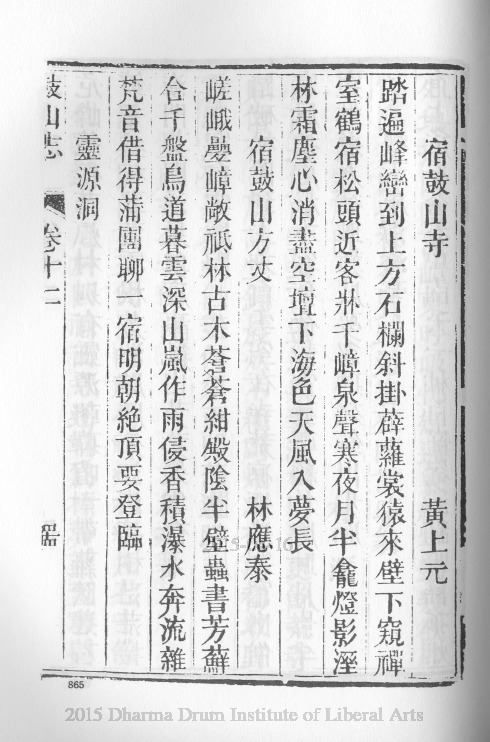 宿鼓山寺 黃上元
踏遍峰巒到上方石欄斜掛薜蘿裳猿來壁下窺禪
室鶴宿松頭近客牀千嶂泉聲寒夜月半龕燈影溼
林霜塵心消盡空壇下海色天風入夢長
宿鼓山方丈 林應泰
嵯峨疊嶂敞祇林古木蒼蒼紺殿陰半壁蟲書芳蘚
合千盤鳥道暮雲深山嵐作雨侵香積瀑水奔流雜
梵音借得蒲團聊一宿明朝絶頂要登臨
靈源洞
鼓山志 卷十二
865
2015 Dharma Drum Institute of Liberal Arts